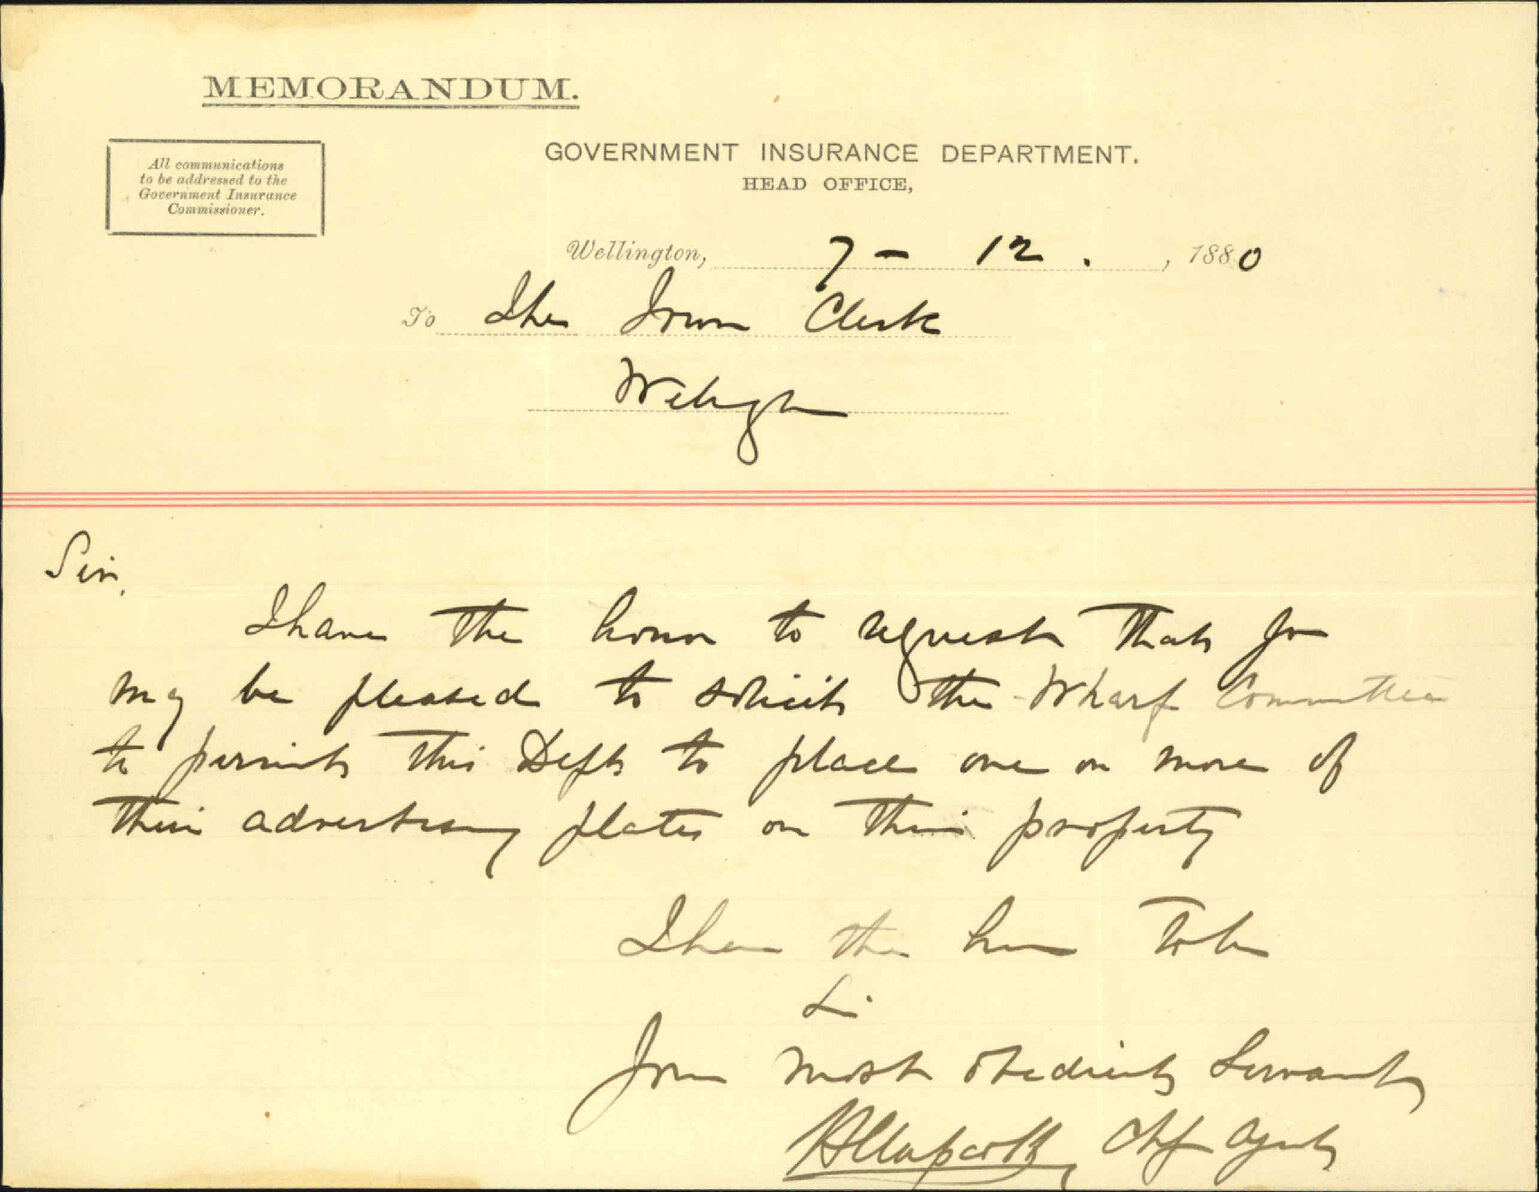 MEMORANDUM.
All communications
to be addressed to the
Government Insurance
Commissioner.
GOVERNMENT INSURANCE DEPARTMENT.
HEAD OFFICE,
Wellington, 7 - 12 . , 1880
To The Town Clerk
Wellington
Sir,
I have the honor to request that you
may be pleased to solicit the Wharf Committee
to permit this Dept to place one or more of
their advertising plates on their property
I have the honor to be
Sir
Your most obedient Servant
Chf Agent